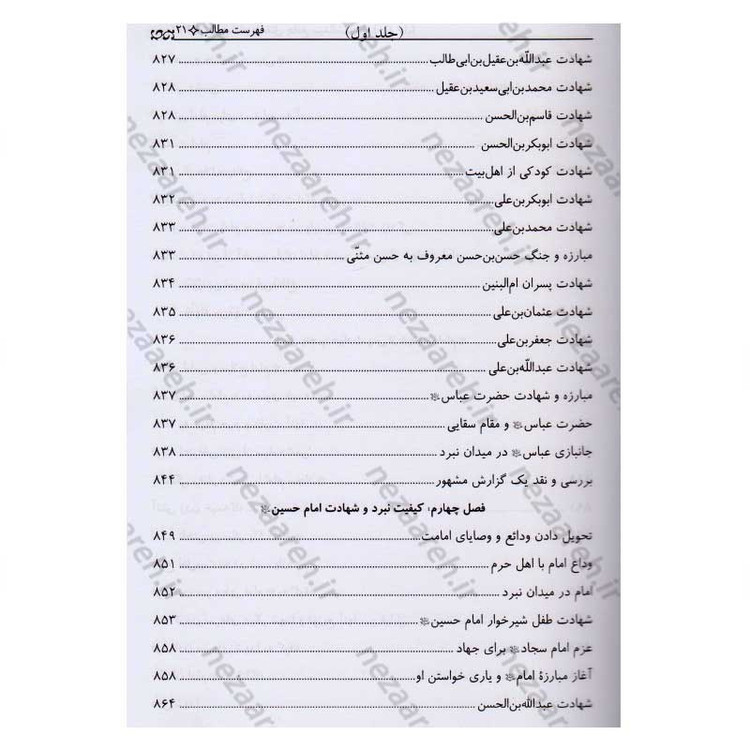 (جلد اول) فهرست مطالب ۲۱
شهادت عبداللّه‌بن‌عقیل‌بن‌ابی‌طالب ۸۲۷
شهادت محمدبن‌ابی‌سعیدبن‌عقیل ۸۲۸
شهادت قاسم‌بن‌الحسن ۸۲۸
شهادت ابوبکربن‌الحسن ۸۳۱
شهادت کودکی از اهل‌بیت ۸۳۱
شهادت ابوبکربن‌علی ۸۳۲
شهادت محمدبن‌علی ۸۳۳
مبارزه و جنگ حسن‌بن‌حسن معروف به حسن مثنّی ۸۳۳
شهادت پسران ام‌البنین ۸۳۴
شهادت عثمان‌بن‌علی ۸۳۵
شهادت جعفربن‌علی ۸۳۶
شهادت عبداللّه‌بن‌علی ۸۳۶
مبارزه و شهادت حضرت عباس ۸۳۷
حضرت عباس و مقام سقایی ۸۳۷
جانبازی عباس در میدان نبرد ۸۳۸
بررسی و نقد یک گزارش مشهور ۸۴۴
فصل چهارم: کیفیت نبرد و شهادت امام حسین
تحویل دادن ودائع و وصایای امامت ۸۴۹
وداع امام با اهل حرم ۸۵۱
امام در میدان نبرد ۸۵۲
شهادت طفل شیرخوار امام حسین ۸۵۳
عزم امام سجاد برای جهاد ۸۵۸
آغاز مبارزهٔ امام و یاری خواستن او ۸۵۸
شهادت عبدالله‌بن‌الحسن ۸۶۴
nezaareh.ir